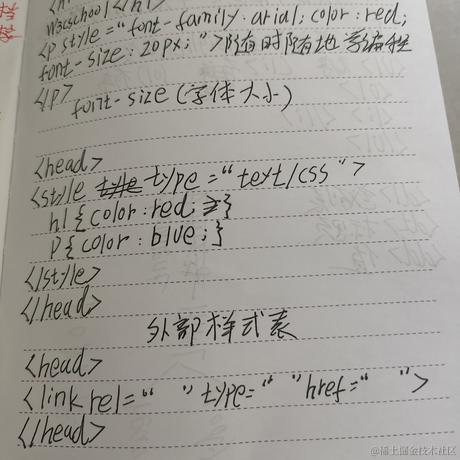 w3cschool</h1>
<p style="font-family:arial;color:red;
font-size:20px;">随时随地学编程
</p>
font-size(字体大小)
<head>
<style type="text/css">
h1{color:red;}
p{color:blue;}
</style>
</head>
外部样式表
<head>
<link rel=" " type=" " href=" ">
</head>
@稀土掘金技术社区